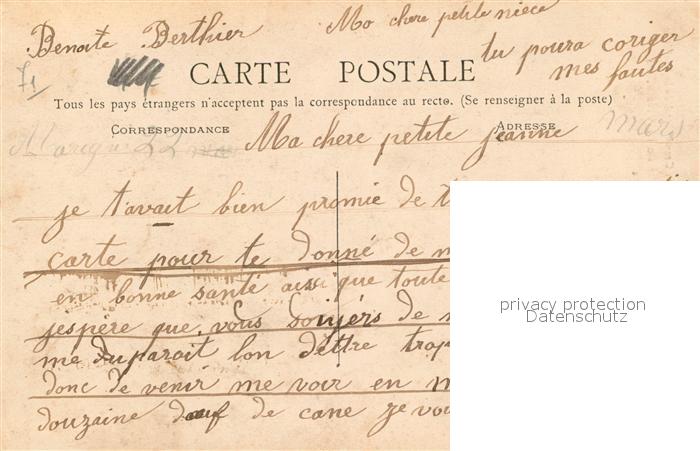 Benoite Berthier
Ma chere petite niece
tu poura coriger
mes fautes
71
CARTE POSTALE
Tous les pays étrangers n'acceptent pas la correspondance au recto. (Se renseigner à la poste)
CORRESPONDANCE
ADRESSE
mars
Ma chere petite jeanne
je t'avait bien promie de
carte pour te donné de
en bonne santé ainsi que toute
jespère que vous soiyérs de
me duparait lon dêttre trop
donc de venir me voir en
douzaine dœuf de cane je vou
privacy protection
Datenschutz